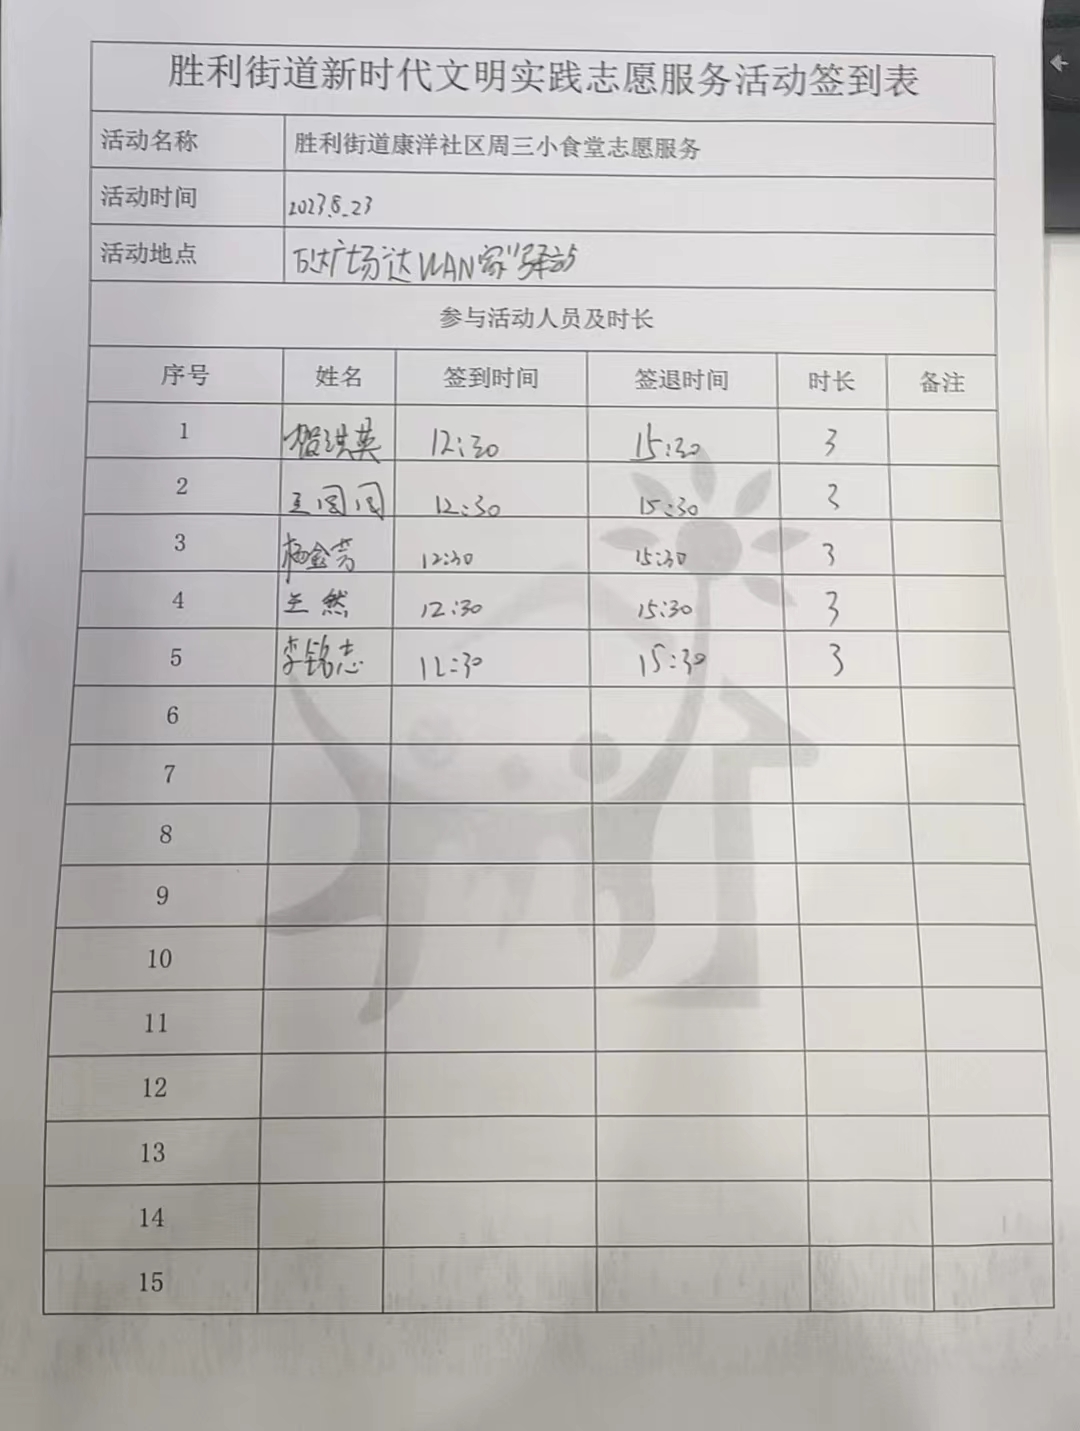 胜利街道新时代文明实践志愿服务活动签到表
活动名称 胜利街道康洋社区周三小食堂志愿服务
活动时间 2023.8.23
活动地点 万达广场"达WAN家"驿站
参与活动人员及时长
序号 姓名 签到时间 签退时间 时长 备注
1 洪英 12:30 15:30 3
2 王园园 12:30 15:30 3
3 杨金芳 12:30 15:30 3
4 王然 12:30 15:30 3
5 李铭志 12:30 15:30 3
6
7
8
9
10
11
12
13
14
15